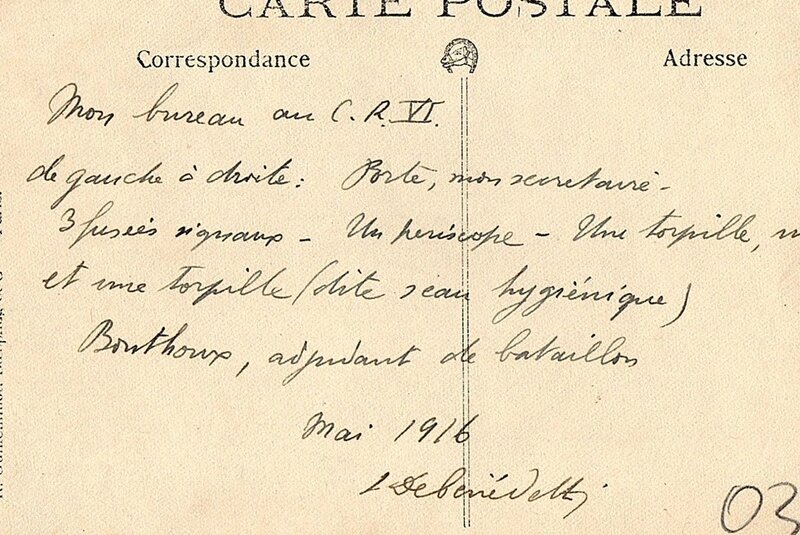 CARTE POSTALE
Correspondance
Adresse
Mon bureau au C. R. VI.
de gauche à droite: Porte, mon secretaire -
3 fusées signaux - Un periscope - Une torpille,
et une torpille (dite seau hygiénique)
Bouthoux, adjudant de bataillon
Mai 1916
Debenédetti
03